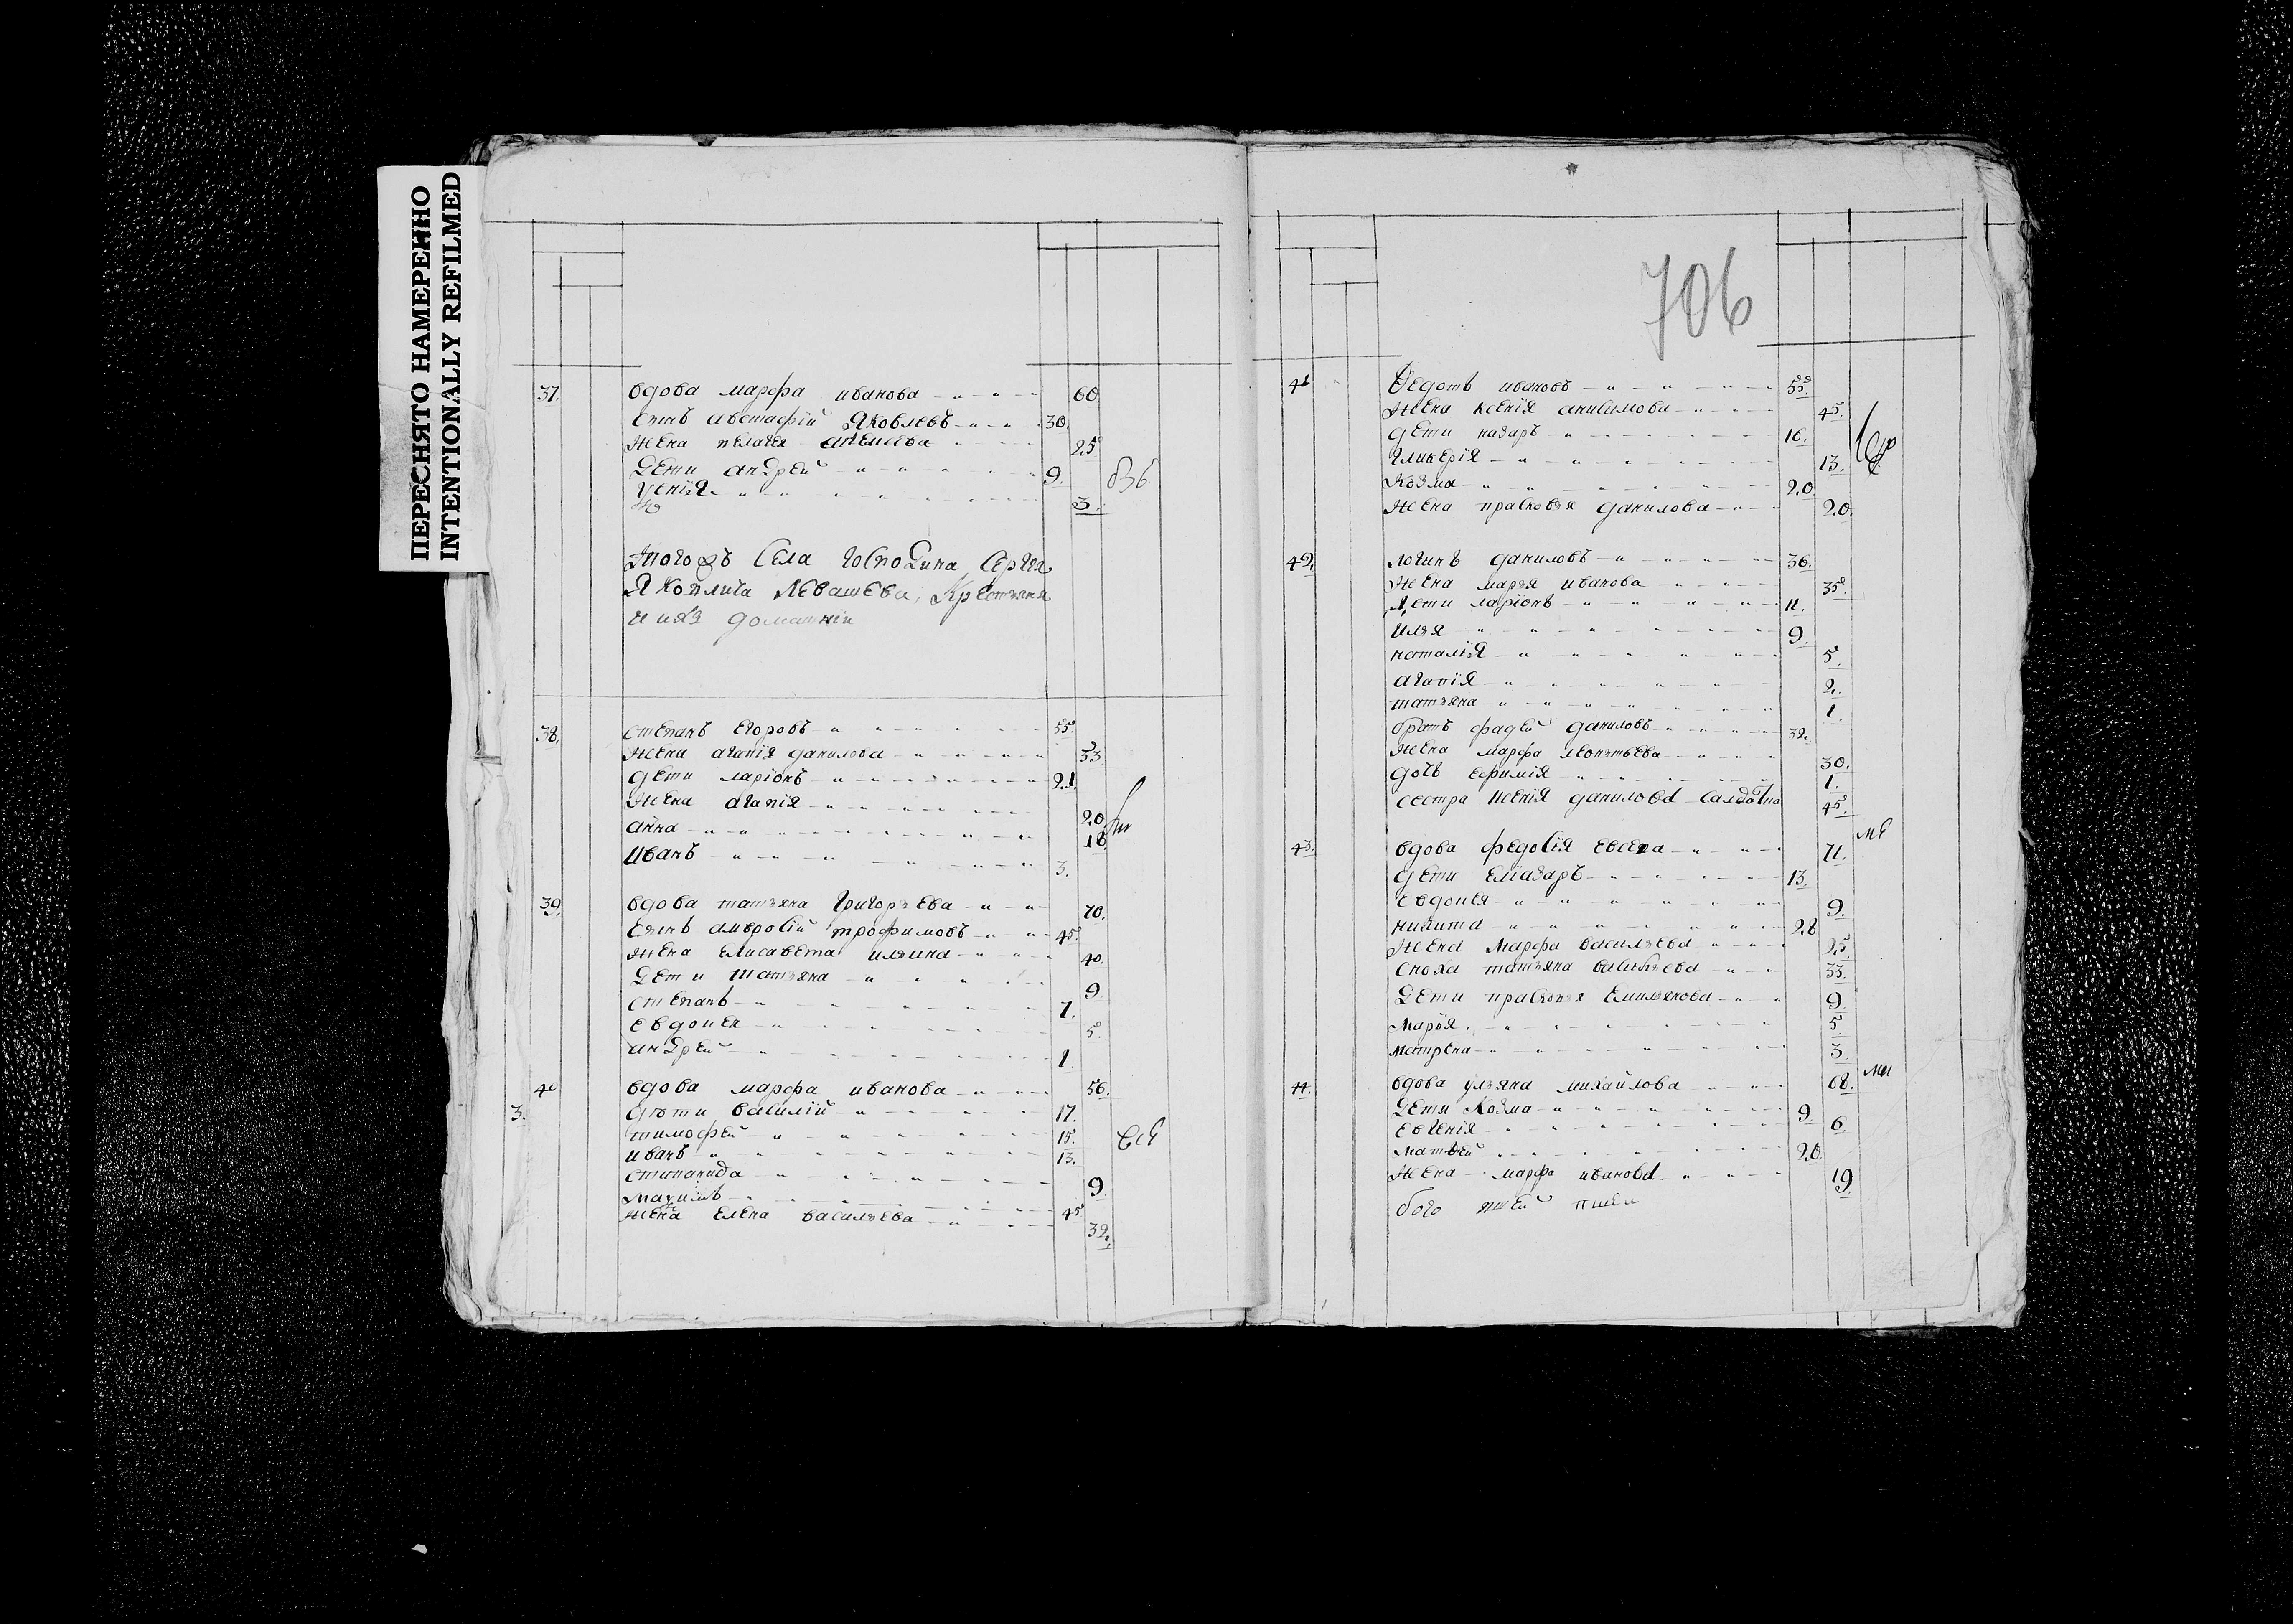 ПЕРЕСНЯТО НАМЕРЕННО
INTENTIONALLY REFILMED
37. вдова марфа иванова 60
сынъ австафiй Яковлевъ 30.
жена пелагея 25
Дети андрей 9.
3.
тогожъ Села господина Сергея
Яковлича Левашева, Крестьяня
и ихъ домашнiи
38. степанъ егоровъ 55
жена агапiя данилова 33
дети ларiонъ 21.
жена агапiя 20
анна 18
иванъ 3.
39. вдова татьяна григорьева 70.
сынъ амвросiй трофимовъ 45
жена елисавета ильина 40.
Дети татьяна 9
степанъ 7.
евдокея 5.
андрей 1
40 вдова марфа иванова 56.
3. дѣти василiй 17.
тимофей 15.
иванъ 13.
степанида 9.
45
жена елена васильева 32.
706
41 Федотъ ивановъ 55.
жена ксенiя анисимова 45.
дети назаръ 16.
гликерiя 13.
козма 20
жена прасковья данилова 20.
42. логинъ даниловъ 36.
жена марья иванова 35.
Дети ларiонъ 11.
илья 9.
наталiя 5.
агапiя 2.
татьяна 1.
братъ фадей даниловъ 32.
жена марфа леонтьева 30.
дочь ефимiя 1.
сестра ксенiя данилова салдатка 45.
43. вдова федосiя 71.
дети елиазаръ 13.
евдокея 9.
никита 28
жена Марфа васильева 25
сноха татьяна васильева 33.
Дети прасковья емильянова 9.
Марiя 5
матрена 3.
44. вдова ульяна михайлова 68.
Дети Козма 9
евгенiя 6
матвей 20
жена марфа иванова 19.